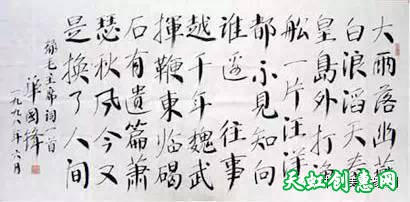 大雨落幽燕
白浪滔天秦
皇島外打漁
舩一片汪洋
都不見知向
誰邊往事
越千年魏武
揮鞭東临碣
石有遺篇蕭
瑟秋风今又
是換了人间
録毛主席詞一首
華國鋒
一九九八年六月
天虹创意网